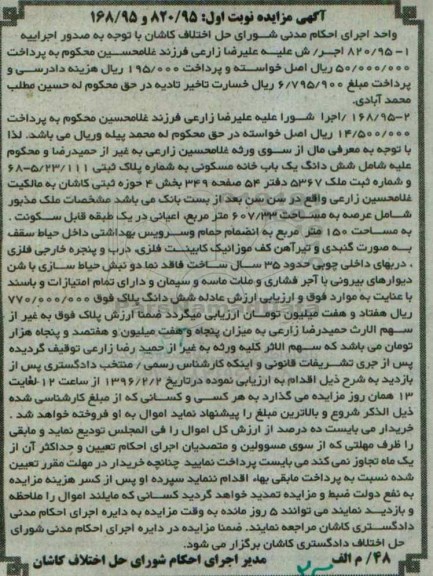 آگهی مزایده نوبت اول: ۸۲۰/۹۵ و ۱۶۸/۹۵
واحد اجرای احکام مدنی شورای حل اختلاف کاشان با توجه به صدور اجراییه
۱- ۸۲۰/۹۵ اجر/ ش علیه علیرضا زارعی فرزند غلامحسین محکوم به پرداخت
۵۰/۰۰۰/۰۰۰ ریال اصل خواسته و پرداخت ۱۹۵/۰۰۰ ریال هزینه دادرسی و
پرداخت مبلغ ۶/۷۹۵/۹۰۰ ریال خسارت تاخیر تادیه در حق محکوم له حسین مطلب
محمد آبادی.
۲- ۱۶۸/۹۵ /اجرا شورا علیه علیرضا زارعی فرزند غلامحسین محکوم به پرداخت
۱۴/۵۰۰/۰۰۰ ریال اصل خواسته در حق محکوم له محمد پیله وریال می باشد. لذا
با توجه به معرفی مال از سوی ورثه غلامحسین زارعی به غیر از حمیدرضا و محکوم
علیه شامل شش دانگ یک باب خانه مسکونی به شماره پلاک ثبتی ۶۸-۵/۲۳/۱۱۱
و شماره ثبت ملک ۵۳۶۷ دفتر ۵۴ صفحه ۳۴۹ بخش ۴ حوزه ثبتی کاشان به مالکیت
غلامحسین زارعی واقع در سن سن بعد از بست بانک می باشد مشخصات ملک مذبور
شامل عرصه به مساحت ۶۰۷/۳۳ متر مربع، اعیانی در یک طبقه قابل سکونت .
به مساحت ۱۵۰ متر مربع به انضمام حمام وسرویس بهداشتی داخل حیاط سقف
به صورت گنبدی و تیرآهن کف موزائیک کابینت فلزی، درب و پنجره خارجی فلزی
، دربهای داخلی چوبی حدود ۳۵ سال ساخت فاقد نما دو نبش حیاط سازی با شن
دیوارهای بیرونی با آجر فشاری و ملات ماسه و سیمان و دارای تمام امتیازات و باسند
با عنایت به موارد فوق و ارزیابی ارزش عادله شش دانگ پلاک فوق ۷۷۰/۰۰۰/۰۰۰
ریال هفتاد و هفت میلیون تومان ارزیابی میگردد ضمنا ارزش پلاک فوق به غیر از
سهم الارث حمیدرضا زارعی به میزان پنجاه و هفت میلیون و هفتصد و پنجاه هزار
تومان می باشد که سهم الاثر کلیه ورثه به غیر از حمید رضا زارعی توقیف گردیده
پس از جری تشریفات قانونی و اینکه کارشناس رسمی / منتخب دادگستری پس از
بازدید به شرح ذیل اقدام به ارزیابی نموده درتاریخ ۱۳۹۶/۲/۲ از ساعت ۱۲ لغایت
۱۳ همان روز مزایده می گذارد به هر کسی و کسانی که از مبلغ کارشناسی شده
ذیل الذکر شروع و بالاترین مبلغ را پیشنهاد نماید اموال به او فروخته خواهد شد .
خریدار می بایست ده درصد از ارزش کل اموال را فی المجلس تودیع نماید و مابقی
را ظرف مهلتی که از سوی مسوولین و متصدیان اجرای احکام تعیین و حداکثر آن از
یک ماه تجاوز نمی کند می بایست پرداخت نمایید چنانچه خریدار در مهلت مقرر تعیین
شده نسبت به پرداخت مابقی بهاء اقدام ننماید سپرده او پس از کسر هزینه مزایده
به نفع دولت ضبط و مزایده تمدید خواهد گردید کسانی که مایلند اموال را ملاحظه
و بازدید نمایند می توانند ۵ روز مانده به وقت مزایده به دایره اجرای احکام مدنی
دادگستری کاشان مراجعه نمایند. ضمنا مزایده در دایره اجرای احکام مدنی شورای
حل اختلاف دادگستری کاشان برگزار می شود.
۴۸/ م الف مدیر اجرای احکام شورای حل اختلاف کاشان